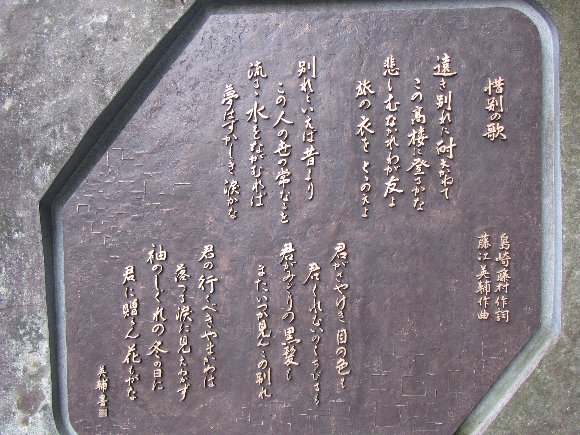 惜別の歌
島崎藤村作詞
藤江英輔作曲
遠き別れに耐えかねて
この高楼に登るかな
悲しむなかれわが友よ
旅の衣をととのえよ
別れといえば昔より
この人の世の常なるを
流るる水をながむれば
夢はずかしき涙かな
君がさやけき目の色も
君くれないのくちびるも
君がみどりの黒髪も
またいつか見んこの別れ
君の行くべきやまかわは
落つる涙に見えわかず
袖のしぐれの冬の日に
君に贈らん花もがな
英輔書